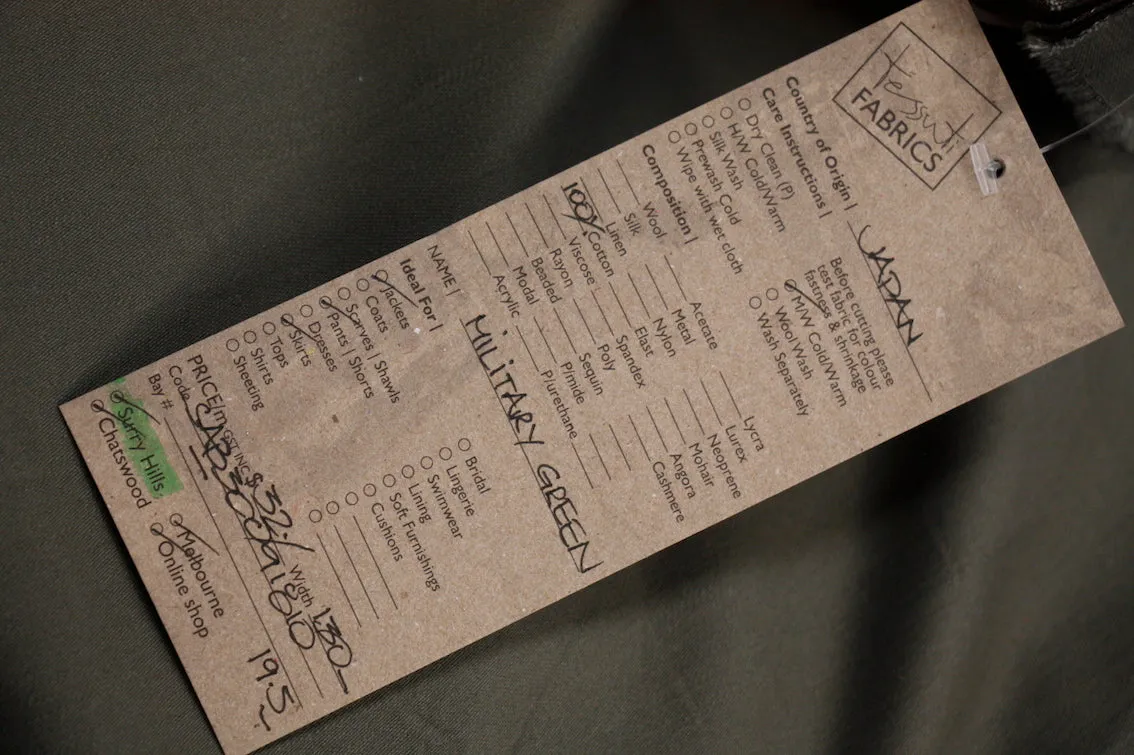 tessuti
FABRICS
Country of Origin | JAPAN
Care Instructions |
Dry Clean (P)
H/W Cold/Warm
Silk Wash
Prewash Cold
Wipe with wet cloth
Before cutting please
test fabric for colour
fastness & shrinkage
M/W Cold/Warm
Wool Wash
Wash Separately
Composition |
Wool
Silk
Linen
100% Cotton
Viscose
Rayon
Beaded
Modal
Acrylic
Acetate
Metal
Nylon
Elast
Spandex
Poly
Sequin
P/mide
P/urethane
Lycra
Lurex
Neoprene
Mohair
Angora
Cashmere
NAME | MILITARY GREEN
Ideal For |
Jackets
Coats
Scarves | Shawls
Pants | Shorts
Dresses
Skirts
Tops
Shirts
Sheeting
Bridal
Lingerie
Swimwear
Lining
Soft Furnishings
Cushions
PRICE/m GST INC $ 32/ Width 1.30
Code
Bay #
Surry Hills
Chatswood
Melbourne
Online shop
19.5